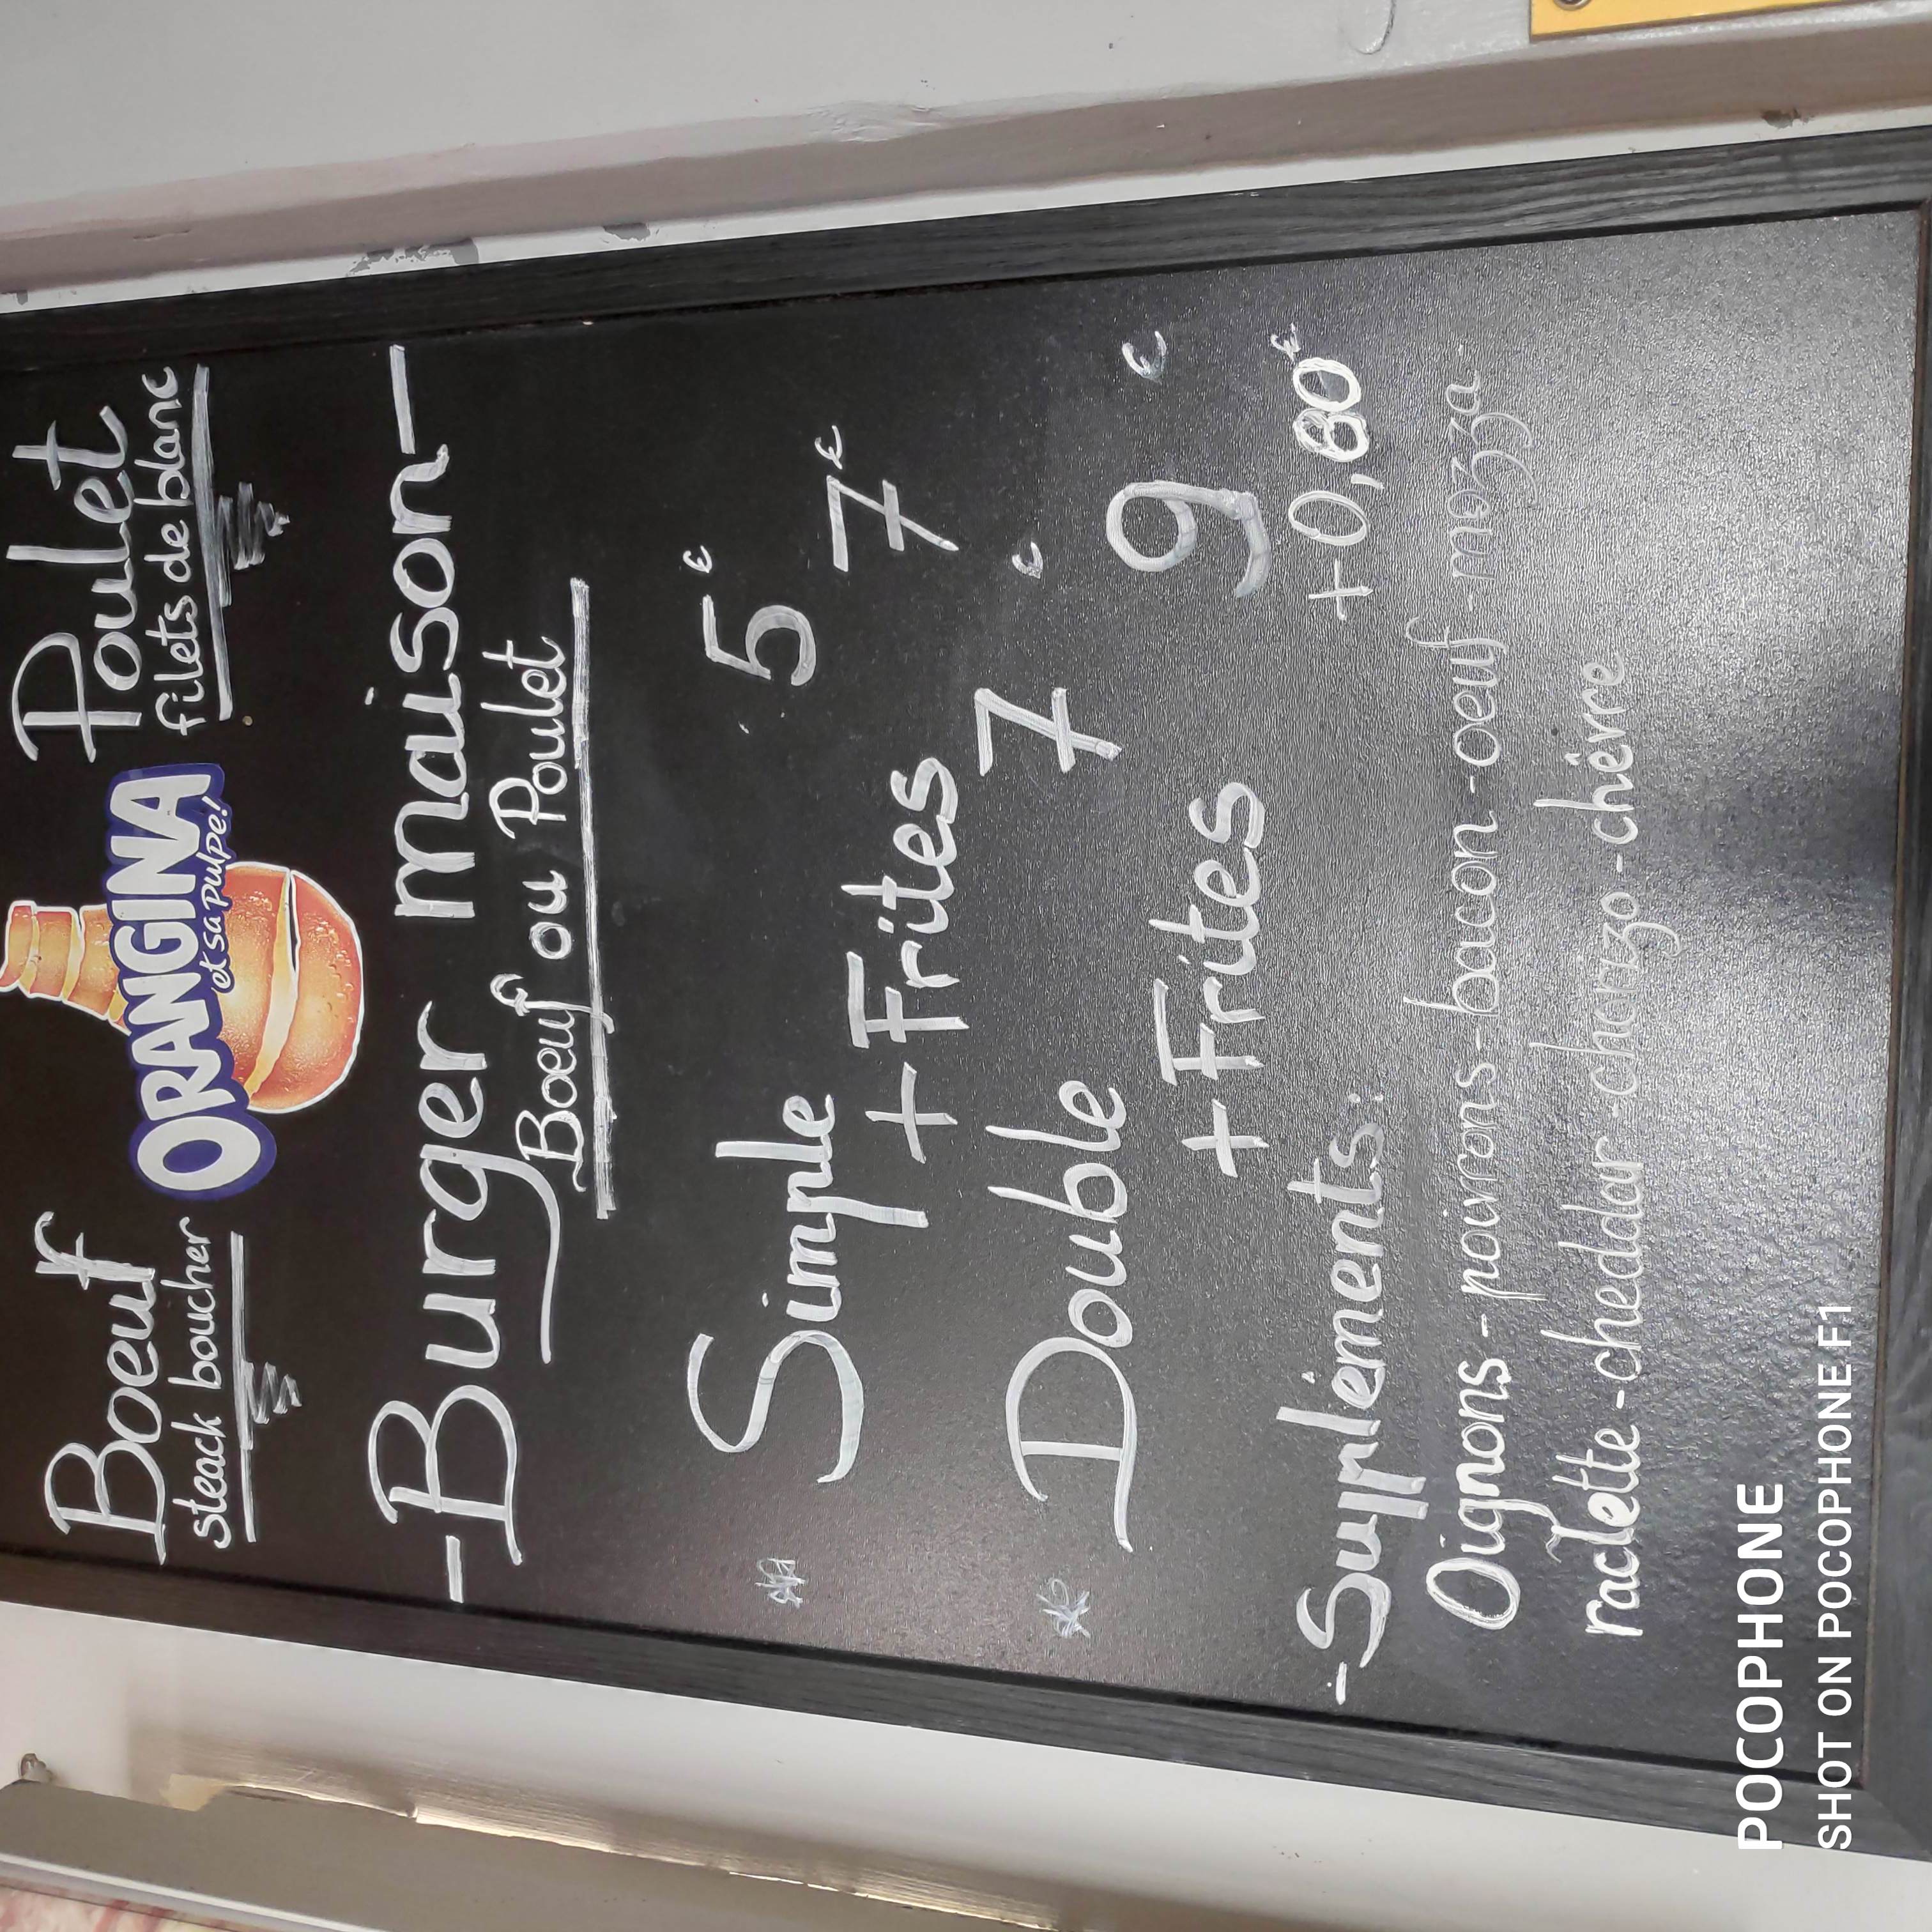 Boeuf
steack boucher
ORANGINA
et sa pulpe!
Poulet
filets de blanc
-Burger maison-
Boeuf ou Poulet
Simple 5€
+Frites 7€
Double 7€
+Frites 9€
-Supléments: +0,80€
Oignons-poivrons-bacon-oeuf-mozza-
raclette-cheddar-chorizo-chèvre
POCOPHONE
SHOT ON POCOPHONE F1